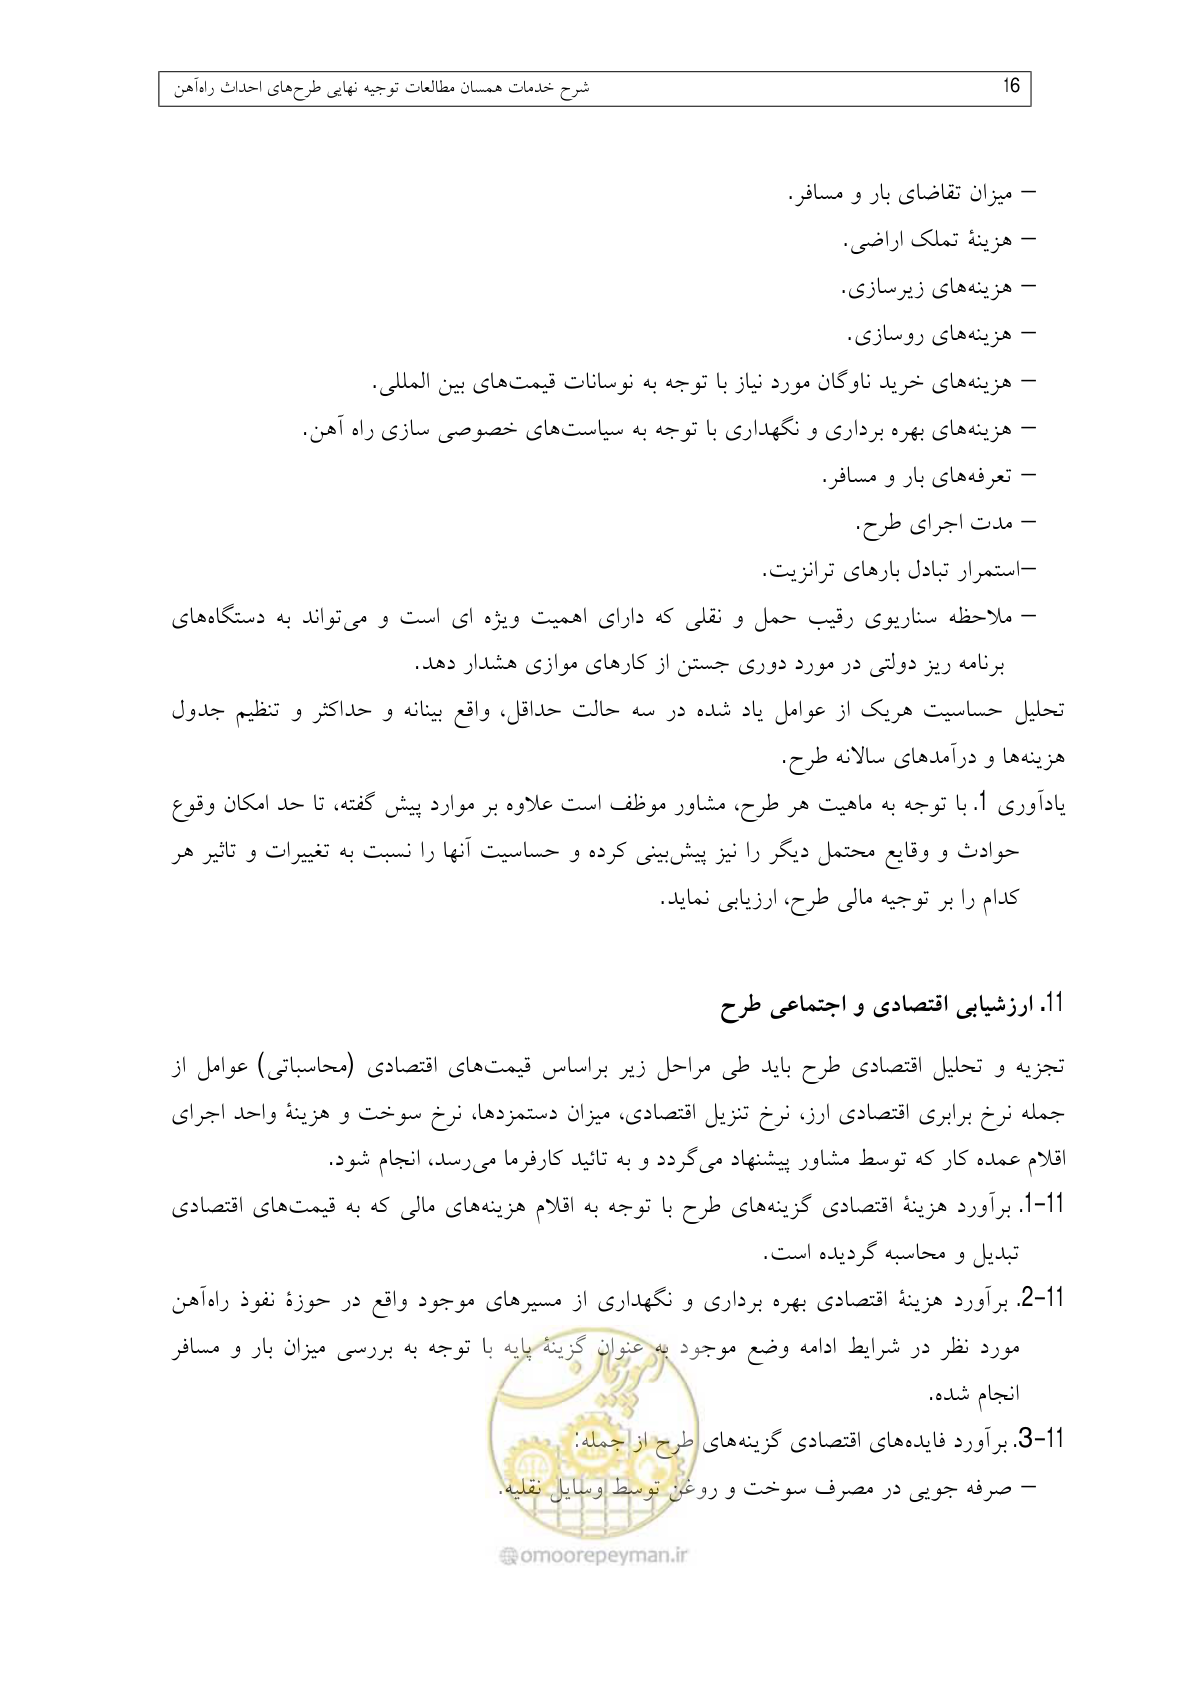 16 شرح خدمات همسان مطالعات توجیه نهایی طرح‌های احداث راه‌آهن
– میزان تقاضای بار و مسافر.
– هزینهٔ تملک اراضی.
– هزینه‌های زیرسازی.
– هزینه‌های روسازی.
– هزینه‌های خرید ناوگان مورد نیاز با توجه به نوسانات قیمت‌های بین المللی.
– هزینه‌های بهره برداری و نگهداری با توجه به سیاست‌های خصوصی سازی راه آهن.
– تعرفه‌های بار و مسافر.
– مدت اجرای طرح.
–استمرار تبادل بارهای ترانزیت.
– ملاحظه سناریوی رقیب حمل و نقلی که دارای اهمیت ویژه ای است و می‌تواند به دستگاه‌های
برنامه ریز دولتی در مورد دوری جستن از کارهای موازی هشدار دهد.
تحلیل حساسیت هریک از عوامل یاد شده در سه حالت حداقل، واقع بینانه و حداکثر و تنظیم جدول
هزینه‌ها و درآمدهای سالانه طرح.
یادآوری 1. با توجه به ماهیت هر طرح، مشاور موظف است علاوه بر موارد پیش گفته، تا حد امکان وقوع
حوادث و وقایع محتمل دیگر را نیز پیش‌بینی کرده و حساسیت آنها را نسبت به تغییرات و تاثیر هر
کدام را بر توجیه مالی طرح، ارزیابی نماید.
11. ارزشیابی اقتصادی و اجتماعی طرح
تجزیه و تحلیل اقتصادی طرح باید طی مراحل زیر براساس قیمت‌های اقتصادی (محاسباتی) عوامل از
جمله نرخ برابری اقتصادی ارز، نرخ تنزیل اقتصادی، میزان دستمزدها، نرخ سوخت و هزینهٔ واحد اجرای
اقلام عمده کار که توسط مشاور پیشنهاد می‌گردد و به تائید کارفرما می‌رسد، انجام شود.
11-1. برآورد هزینهٔ اقتصادی گزینه‌های طرح با توجه به اقلام هزینه‌های مالی که به قیمت‌های اقتصادی
تبدیل و محاسبه گردیده است.
11-2. برآورد هزینهٔ اقتصادی بهره برداری و نگهداری از مسیرهای موجود واقع در حوزهٔ نفوذ راه‌آهن
مورد نظر در شرایط ادامه وضع موجود به عنوان گزینهٔ پایه با توجه به بررسی میزان بار و مسافر
انجام شده.
11-3. برآورد فایده‌های اقتصادی گزینه‌های طرح از جمله:
– صرفه جویی در مصرف سوخت و روغن توسط وسایل نقلیه.
امور پیمان
@omoorepeyman.ir